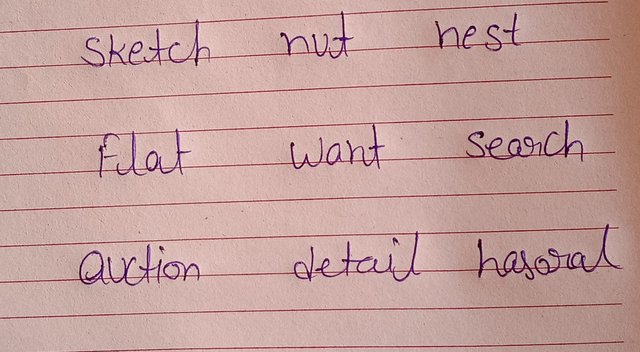 Sketch nut nest
Flat want search
Auction detail hasoral